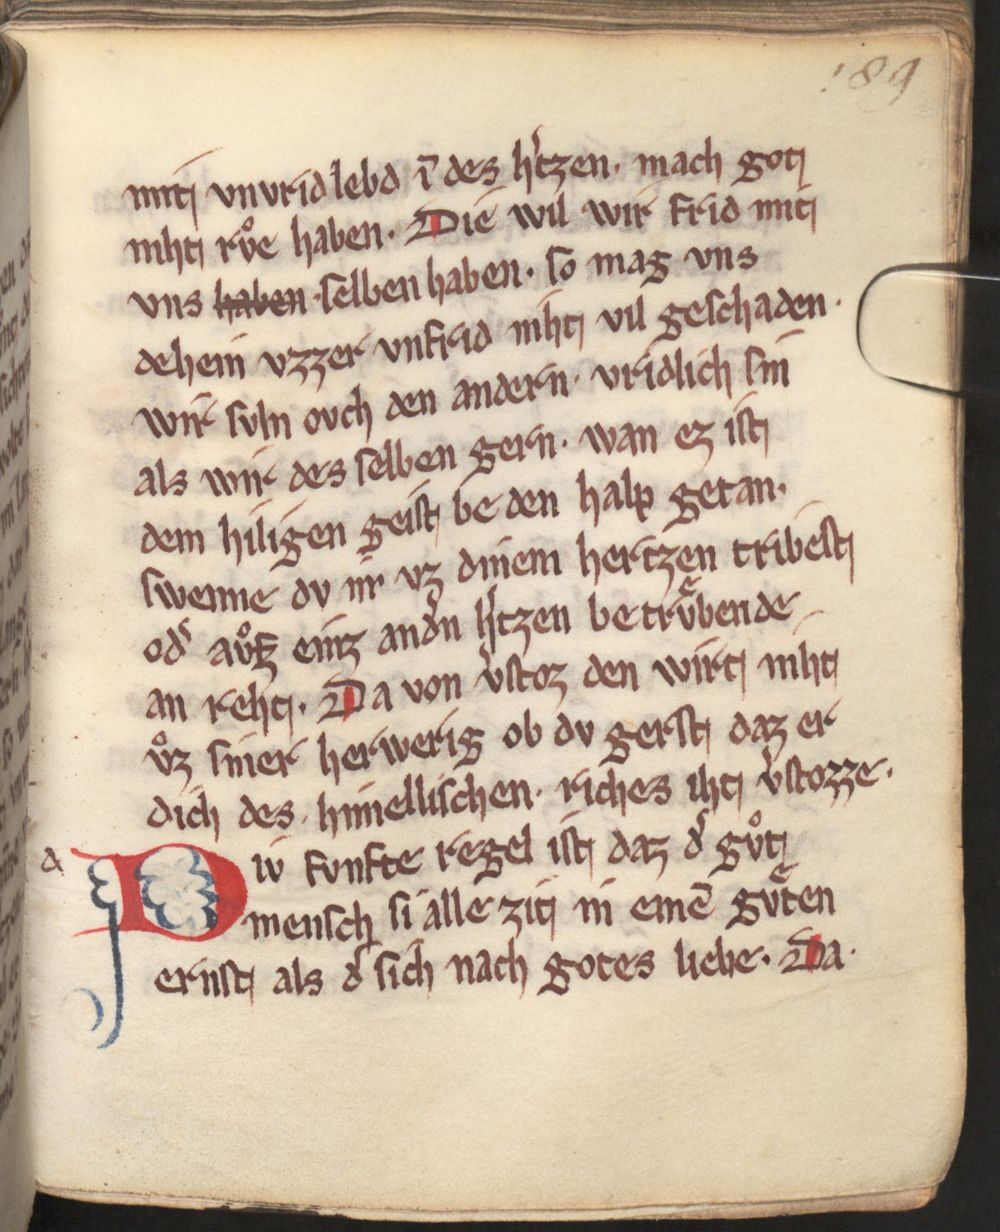 189
mit vnvrid lebd ī des h̾tzen · mach got
niht rvͦe haben · Die wil wir frid mit
vns haben · selben haben · so mag vns
dehein vzzer vnfrid niht vil geschaden ·
wir svln ovch den andern · vridlich sin
als wir des selben gern · wan ez ist
dem hiligen geist be den halp getan ·
swenne dv in vz dinem hertzen tribest
od̾ avͦz einz and̾n h̾tzen betrvͤbende
an reht · Da von v̾stoz den wirt niht
vͦz siner herwerig ob dv gerst daz er
dich des · himellischen · riches iht v̾stozze ·
d
Div fvnfte regel ist daz d̾ gvͦt
mensch si alle zit in einē gvͤten
ernst als d̾ sich nach gotes liebe · Da ·